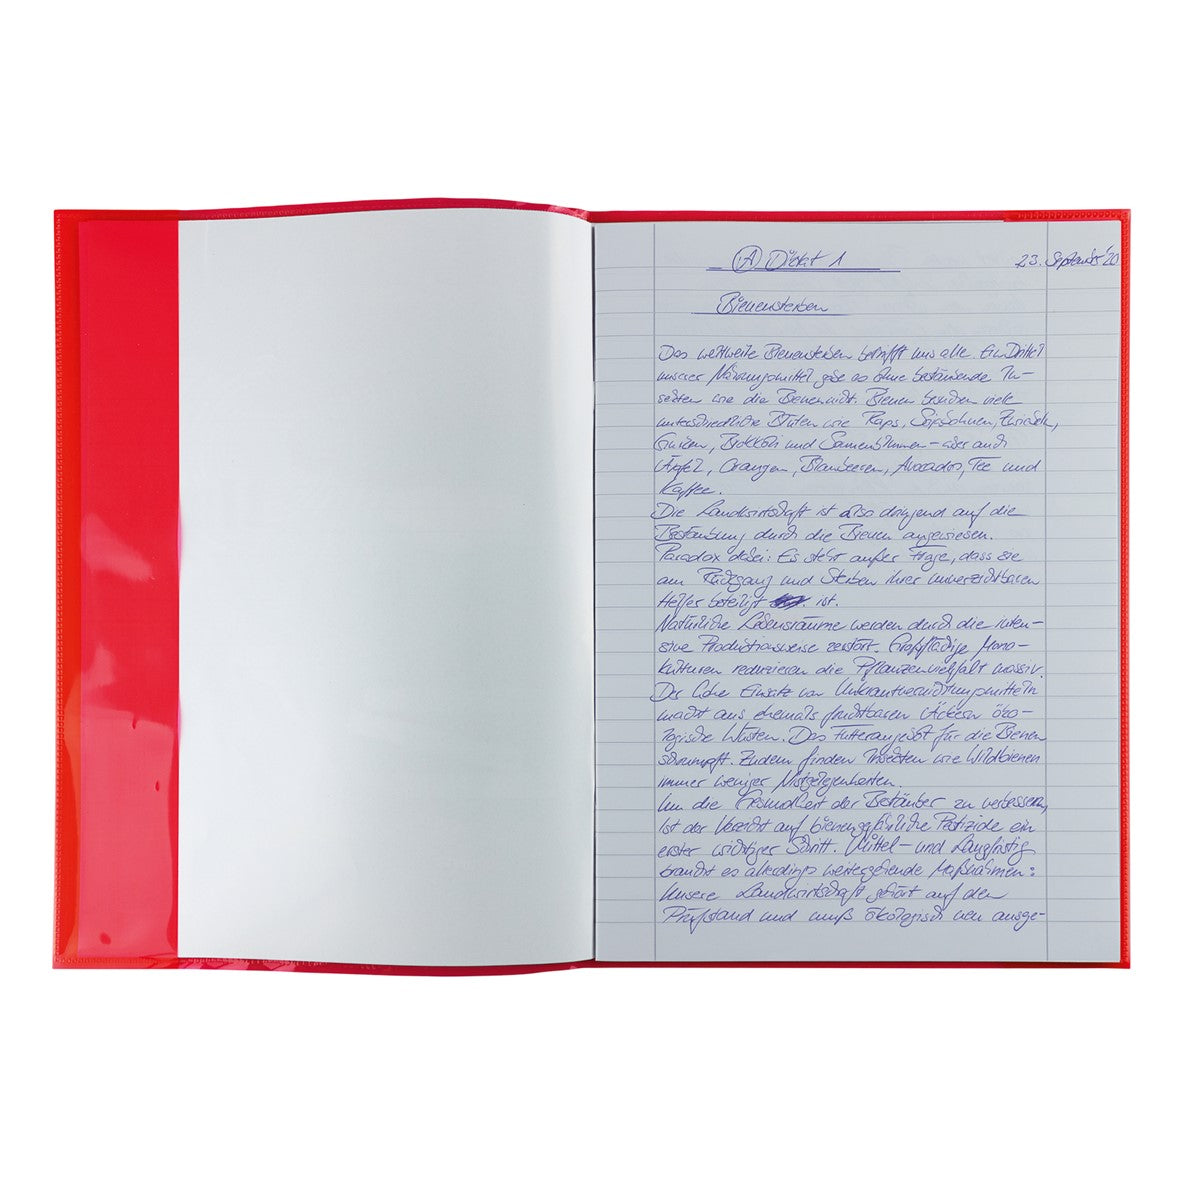 (A) Diktat 1
23. September '20
Bienensterben
Das weltweite Bienensterben betrifft uns alle. Ein Drittel
unserer Nahrungsmittel gäbe es ohne bestäubende In-
sekten wie die Bienen nicht. Bienen besuchen viele
unterschiedliche Blüten wie Raps, Sojabohnen, Zwiebeln,
Gurken, Brokkoli und Sonnenblumen – aber auch
Äpfel, Orangen, Blaubeeren, Avocados, Tee und
Kaffee.
Die Landwirtschaft ist also dringend auf die
Bestäubung durch die Bienen angewiesen.
Paradox dabei: Es steht außer Frage, dass sie
am Rückgang und Sterben ihrer unverzichtbaren
Helfer beteiligt ist.
Natürliche Lebensräume werden durch die inten-
sive Produktionsweise zerstört. Großflächige Mono-
kulturen reduzieren die Pflanzenvielfalt massiv.
Der hohe Einsatz von Unkrautvernichtungsmitteln
macht aus ehemals fruchtbaren Äckern öko-
logische Wüsten. Das Futterangebot für die Bienen
schrumpft. Zudem finden Insekten wie Wildbienen
immer weniger Nistgelegenheiten.
Um die Gesundheit der Bestäuber zu verbessern,
ist der Verzicht auf bienengefährliche Pestizide ein
erster wichtiger Schritt. Mittel- und langfristig
braucht es allerdings weitergehende Maßnahmen:
Unsere Landwirtschaft gehört auf den
Prüfstand und muß ökologisch neu ausge-